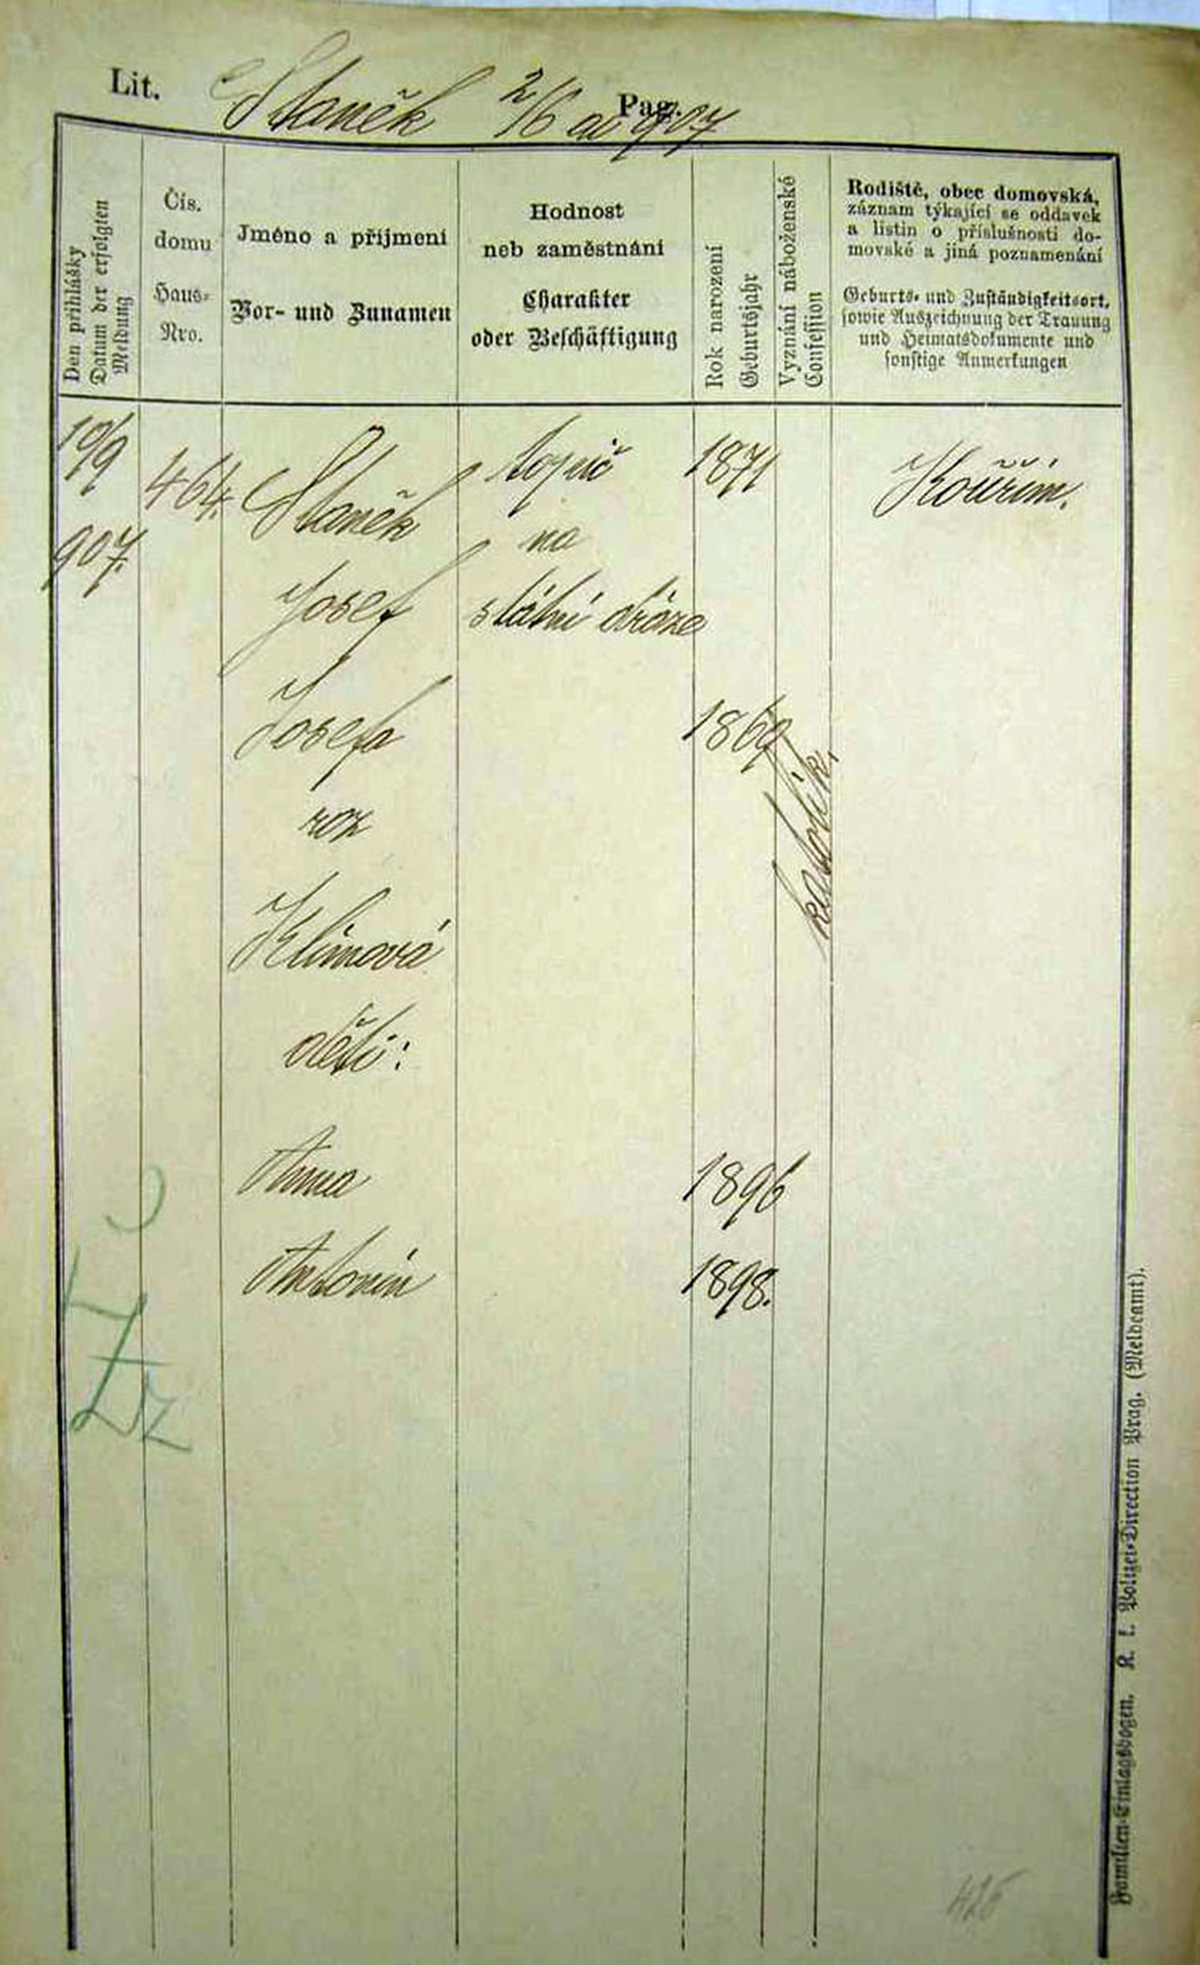 Lit. Staněk 2/6 Pag. 907
Den přihlášky
Datum der erfolgten
Meldung
Čís.
domu
Haus-
Nro.
Jméno a příjmení
Vor- und Zunamen
Hodnost
neb zaměstnání
Charakter
oder Beschäftigung
Rok narození
Geburtsjahr
Vyznání náboženské
Confession
Rodiště, obec domovská,
záznam týkající se oddavek
a listin o příslušnosti do-
movské a jiná poznamenání
Geburts- und Zuständigkeitsort,
sowie Auszeichnung der Trauung
und Heimatsdokumente und
sonstige Anmerkungen
19/9 464. Staněk topič 1871 Kouřim.
907. na
Josef státní dráze
Josefa 1869
katolík.
roz
Klímová
děti:
Anna 1896
Antonín 1898.
Familien-Einlagebogen. K. k. Polizei-Direction Prag. (Meldeamt).
425